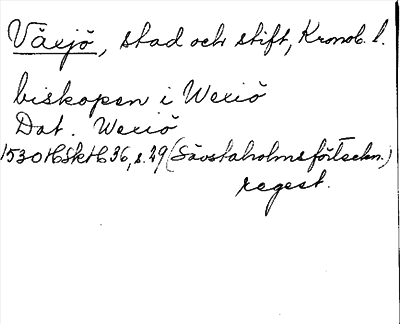 Växjö, stad och stift, Kronob. l.
biskopen i Wexiö
Dat. Wexiö
1530 HSkH 36, s. 29 (Sävstaholmsförteckn.)
regest.